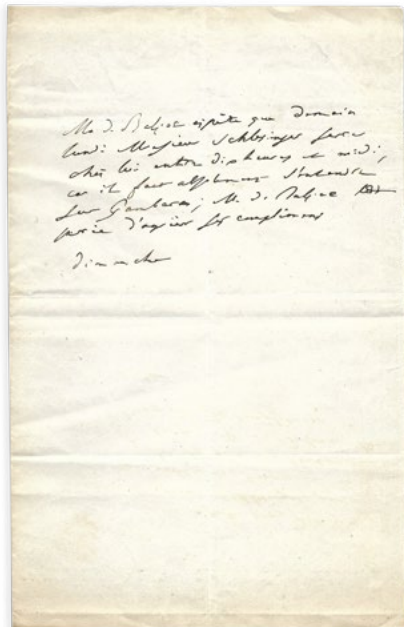 M. de Balzac espère que demain
lundi Monsieur Schlesinger sera
chez lui entre dix heures et midi,
car il faut absolument s'entendre
sur Gambara; M. de Balzac
le prie d'agréer ses complimens
dimanche